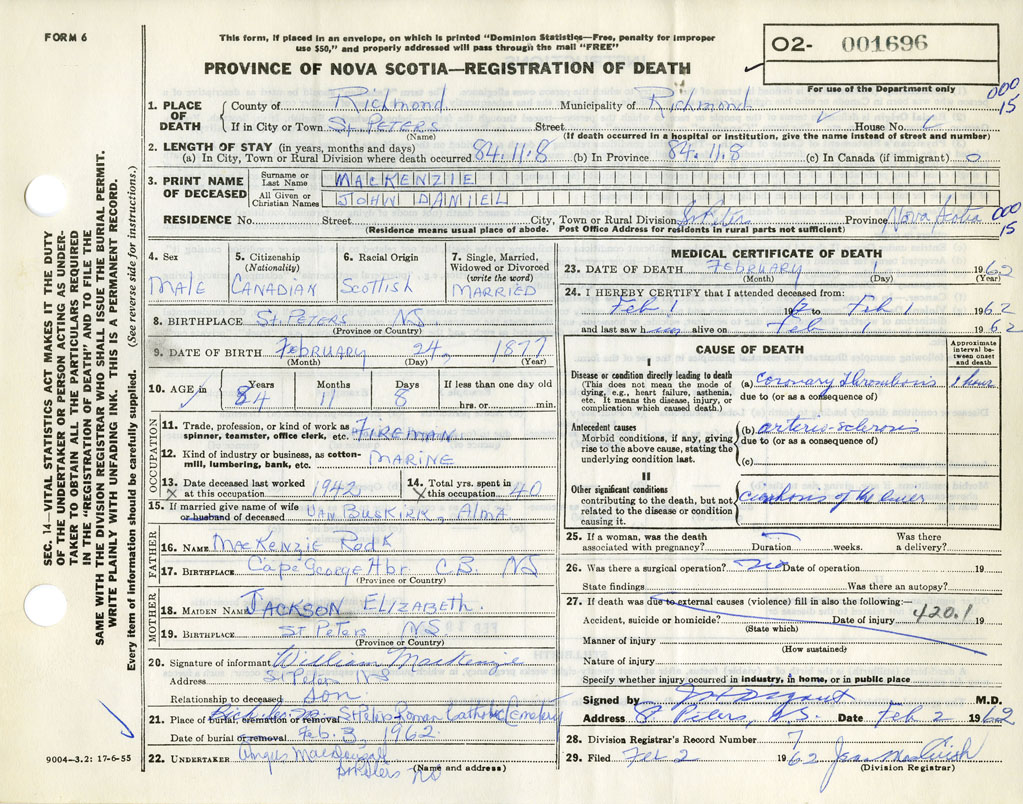 FORM 6
This form, if placed in an envelope, on which is printed "Dominion Statistics—Free, penalty for improper
use $50," and properly addressed will pass through the mail "FREE"
PROVINCE OF NOVA SCOTIA—REGISTRATION OF DEATH
02- 001696
For use of the Department only
000
15
1. PLACE OF DEATH
County of Richmond Municipality of Richmond
If in City or Town St. PETERS Street House No.
(Name) (If death occurred in a hospital or institution, give the name instead of street and number)
2. LENGTH OF STAY (in years, months and days)
(a) In City, Town or Rural Division where death occurred 84.11.8 (b) In Province 84.11.8 (c) In Canada (if immigrant) 0
3. PRINT NAME OF DECEASED
Surname or Last Name MACKENZIE
All Given or Christian Names JOHN DANIEL
RESIDENCE No. Street City, Town or Rural Division St Peters Province Nova Scotia
000
15
(Residence means usual place of abode. Post Office Address for residents in rural parts not sufficient)
4. Sex
MALE
5. Citizenship (Nationality)
CANADIAN
6. Racial Origin
Scottish
7. Single, Married, Widowed or Divorced (write the word)
MARRIED
8. BIRTHPLACE St. PETERS NS.
(Province or Country)
9. DATE OF BIRTH FEBRUARY 24, 1877
(Month) (Day) (Year)
10. AGE in Years Months Days If less than one day old
84 11 8 hrs. or min.
OCCUPATION
11. Trade, profession, or kind of work as spinner, teamster, office clerk, etc. FIREMAN
12. Kind of industry or business, as cotton-mill, lumbering, bank, etc. MARINE
13. Date deceased last worked at this occupation 1942
14. Total yrs. spent in this occupation 40
15. If married give name of wife or husband of deceased VAN BUSKIRK, ALMA
FATHER
16. NAME MacKenzie Rodk
17. BIRTHPLACE Cape George Hbr C.B. NS
(Province or Country)
MOTHER
18. MAIDEN NAME JACKSON ELIZABETH.
19. BIRTHPLACE St Peters NS.
(Province or Country)
20. Signature of informant William MacKenzie
Address St Peters NS
Relationship to deceased Son
21. Place of burial, cremation or removal St Peters Roman Catholic Cemetery
Date of burial or removal Feb. 3, 1962
22. UNDERTAKER Angus MacDougall
St Peters NS
(Name and address)
MEDICAL CERTIFICATE OF DEATH
23. DATE OF DEATH FEBRUARY 1 1962
(Month) (Day) (Year)
24. I HEREBY CERTIFY that I attended deceased from:
Feb 1 1962 to Feb 1 1962
and last saw him alive on Feb 1 1962
CAUSE OF DEATH
Approximate interval between onset and death
I
Disease or condition directly leading to death
(This does not mean the mode of dying, e.g., heart failure, asthenia, etc. It means the disease, injury, or complication which caused death.)
(a) Coronary thrombosis 1 hour
due to (or as a consequence of)
Antecedent causes
Morbid conditions, if any, giving rise to the above cause, stating the underlying condition last.
(b) arterio-sclerosis
due to (or as a consequence of)
(c)
II
Other significant conditions
contributing to the death, but not related to the disease or condition causing it.
cirrhosis of the liver
25. If a woman, was the death associated with pregnancy? Duration weeks. Was there a delivery?
26. Was there a surgical operation? no Date of operation 19
State findings Was there an autopsy?
27. If death was due to external causes (violence) fill in also the following:—
Accident, suicide or homicide? Date of injury 19
420.1
(State which)
Manner of injury
(How sustained)
Nature of injury
Specify whether injury occurred in industry, in home, or in public place
Signed by M.D.
Address St Peters, N.S. Date Feb 2 1962
28. Division Registrar's Record Number 7
29. Filed Feb 2 1962
(Division Registrar)
SEC. 14—VITAL STATISTICS ACT MAKES IT THE DUTY
OF THE UNDERTAKER OR PERSON ACTING AS UNDER-
TAKER TO OBTAIN ALL THE PARTICULARS REQUIRED
IN THE "REGISTRATION OF DEATH" AND TO FILE THE
SAME WITH THE DIVISION REGISTRAR WHO SHALL ISSUE THE BURIAL PERMIT.
WRITE PLAINLY WITH UNFADING INK. THIS IS A PERMANENT RECORD.
Every item of information should be carefully supplied. (See reverse side for instructions.)
9004—3.2: 17-6-55